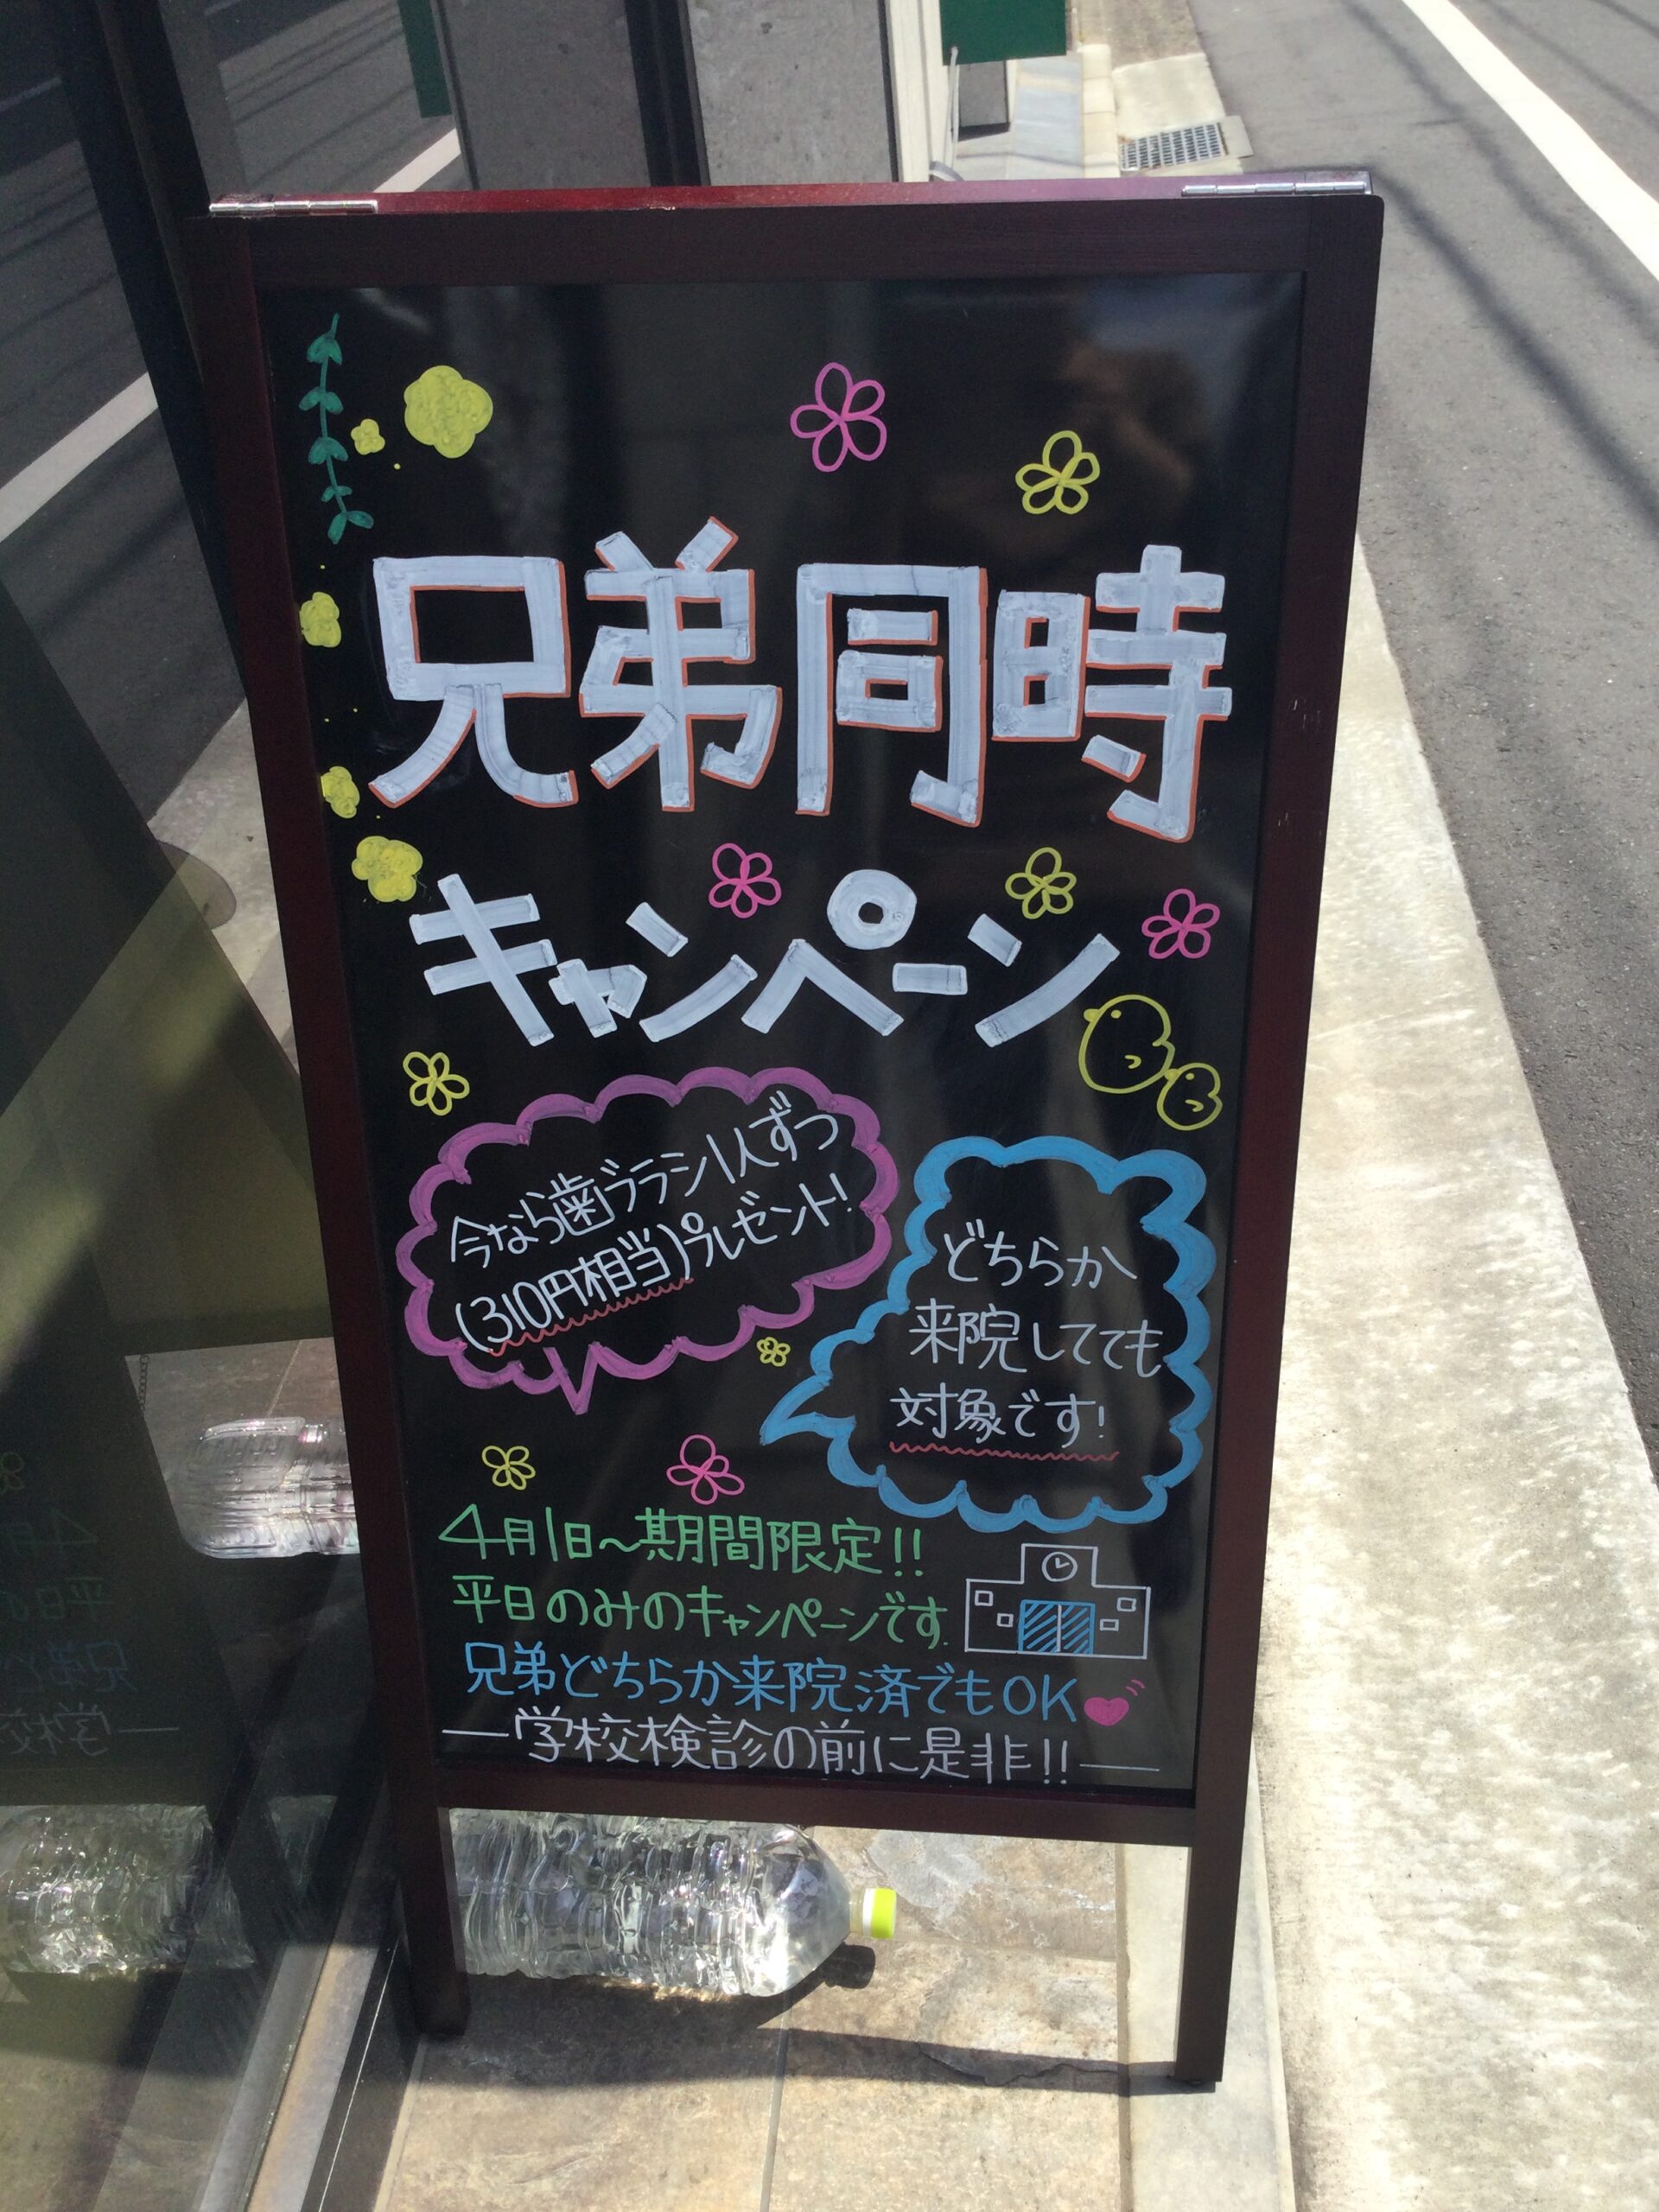 兄弟同時
キャンペーン
今なら歯ブラシ1人ずつ
(310円相当)プレゼント!
どちらか
来院してても
対象です!
4月1日～期間限定!!
平日のみのキャンペーンです.
兄弟どちらか来院済でもOK
―学校検診の前に是非!!―